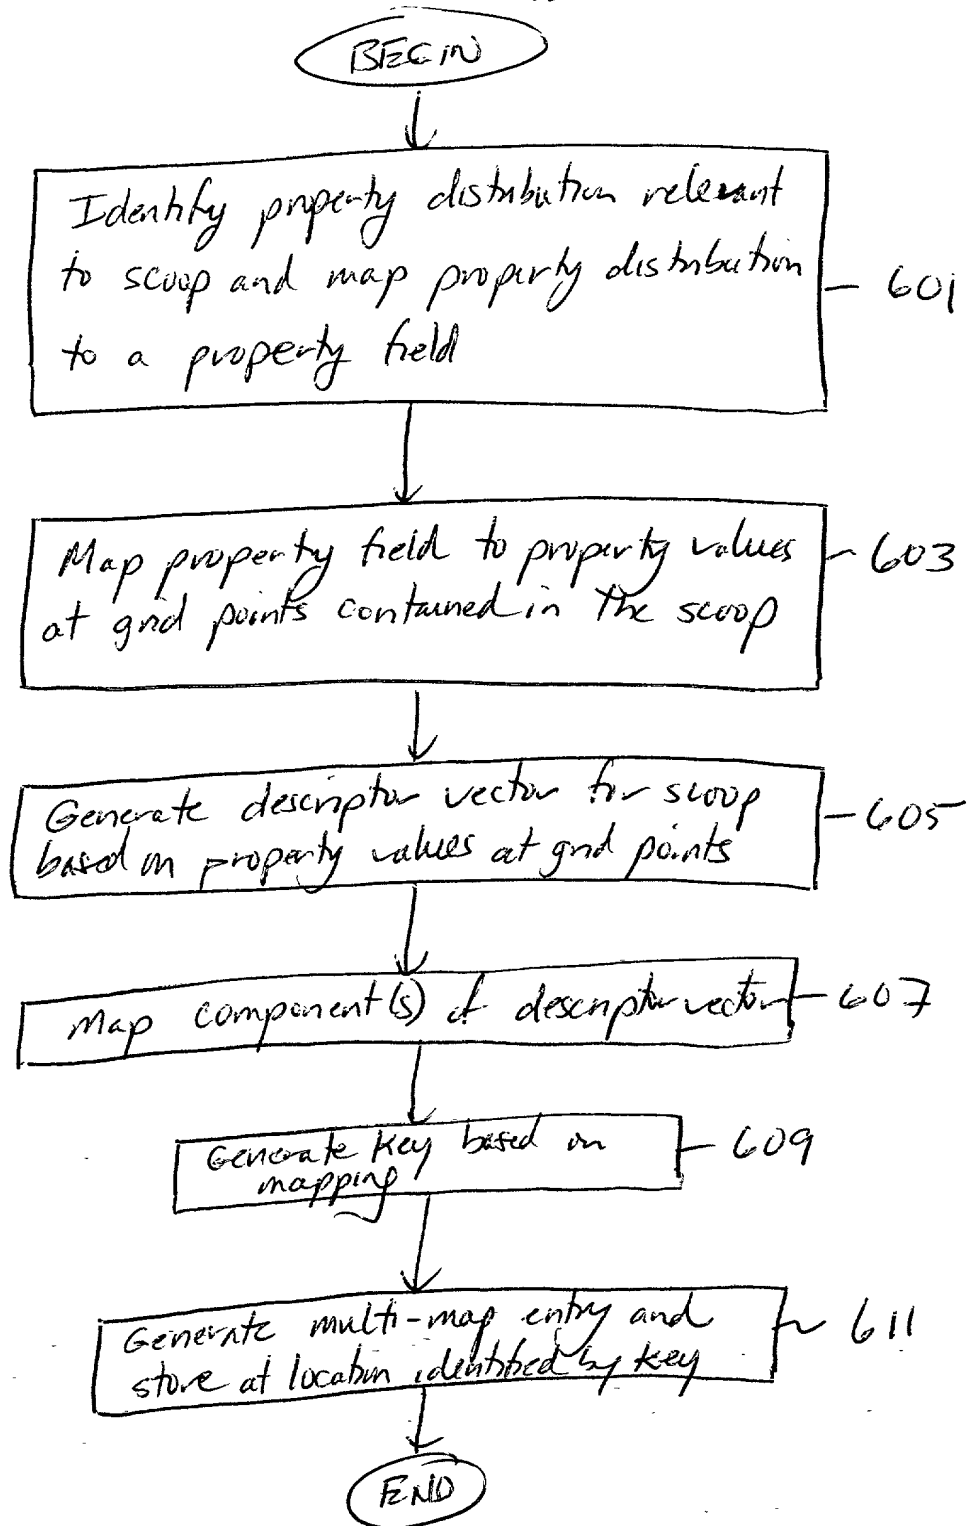 BEGIN
Identify property distribution relevant
to scoop and map property distribution
to a property field
601
Map property field to property values
at grid points contained in the scoop
603
Generate descriptor vector for scoop
based on property values at grid points
605
Map component(s) of descriptor vector
607
Generate key based on
mapping
609
Generate multi-map entry and
store at location identified by key
611
END